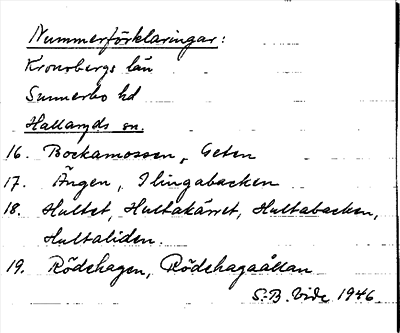 Nummerförklaringar:
Kronobergs län
Sunnerbo hd
Hallaryds sn.
16. Bockamossen, Geten
17. Ängen, Ilingabacken
18. Hultet, Hultakärret, Hultabacken,
Hultaliden.
19. Rödehagen, Rödehagaållan
S.-B. Vide 1946